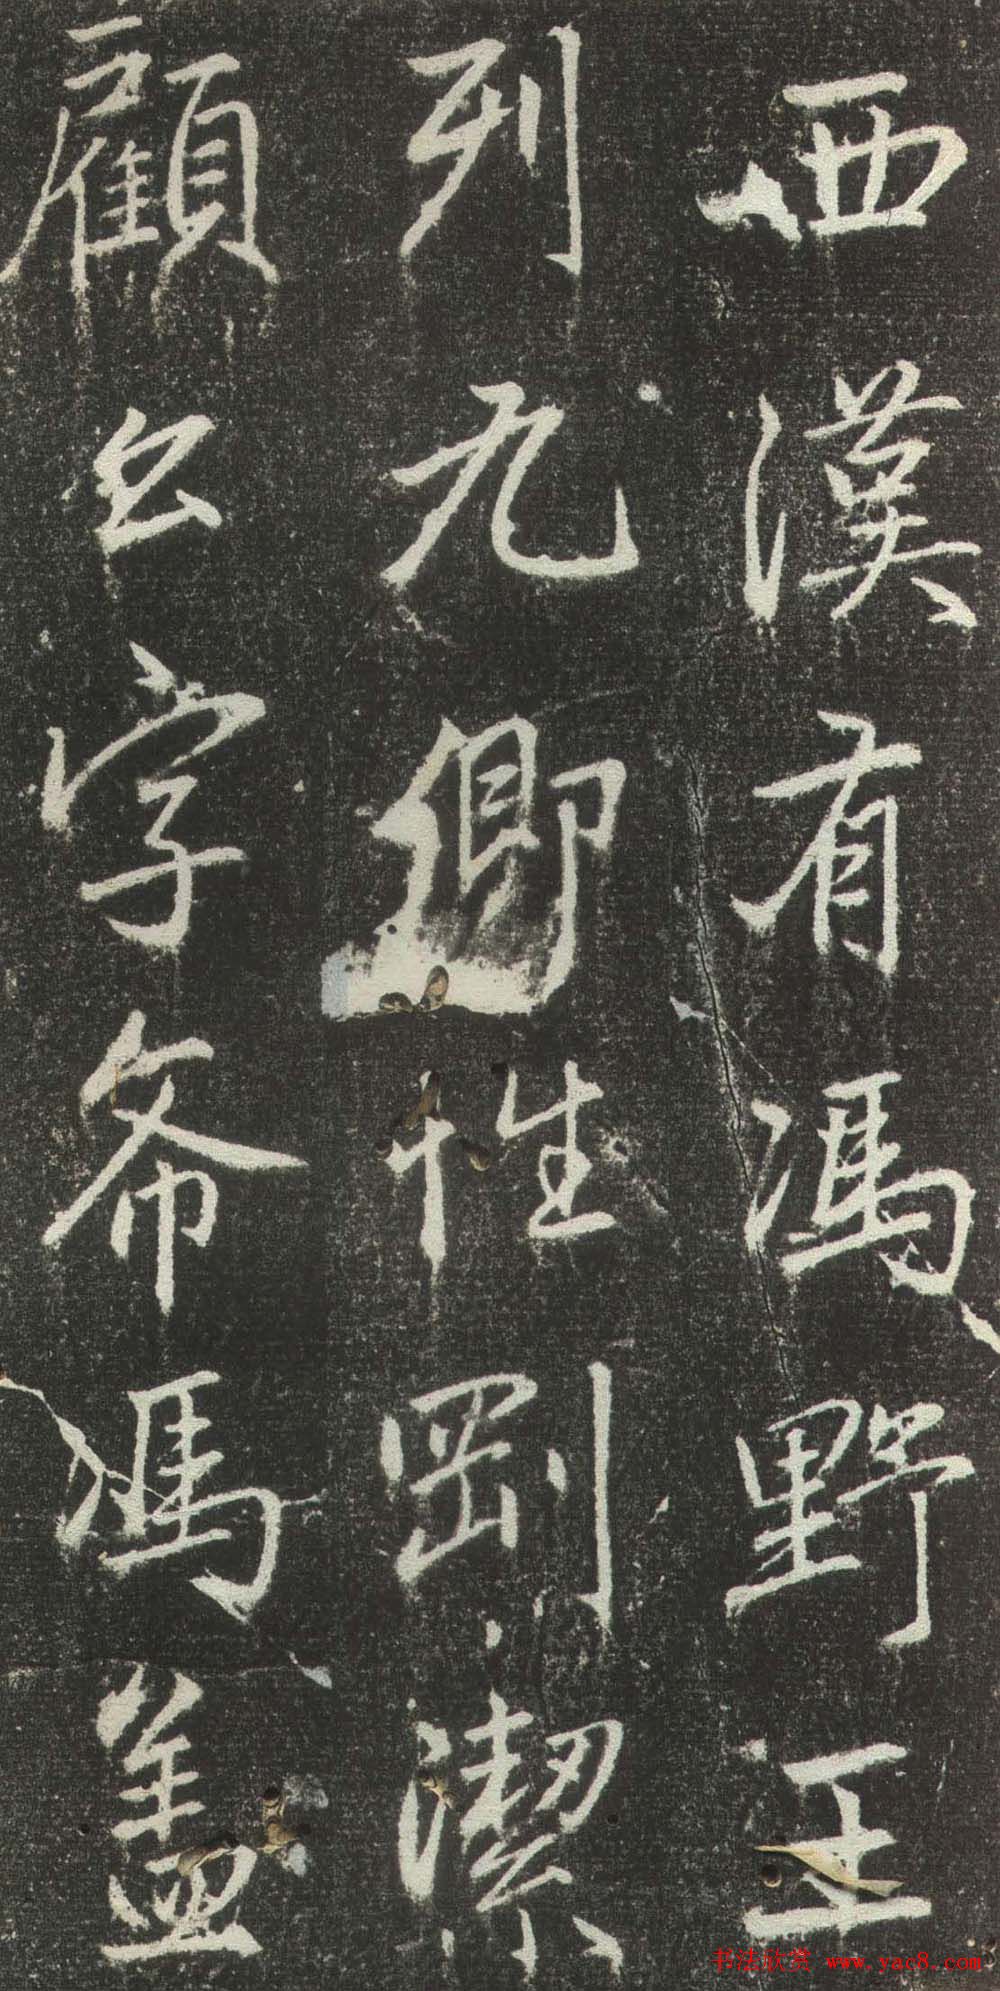 西漢有馮野王
列九卿性剛潔
顧公字希馮盖
书法欣赏 www.yac8.com